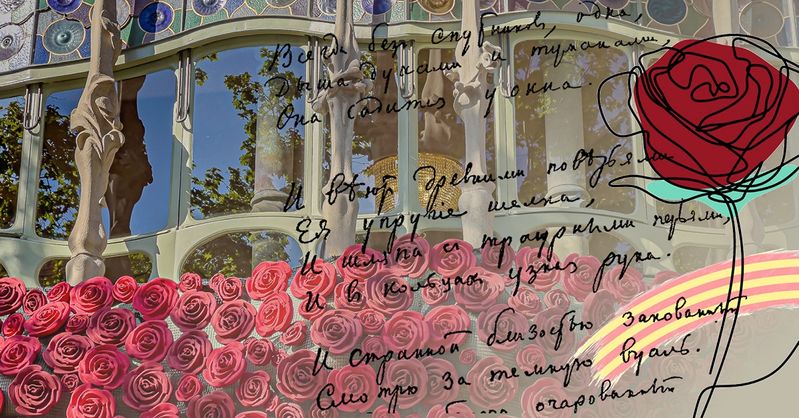 Всегда без спутников, одна,
Дыша духами и туманами,
Она садится у окна.
И вѣют древними повѣрьями
Ея упругие шелка,
И шляпа с траурными перьями,
И в кольцах узкая рука.
И странной близостью закованный
Смотрю за темную вуаль.
очарованный